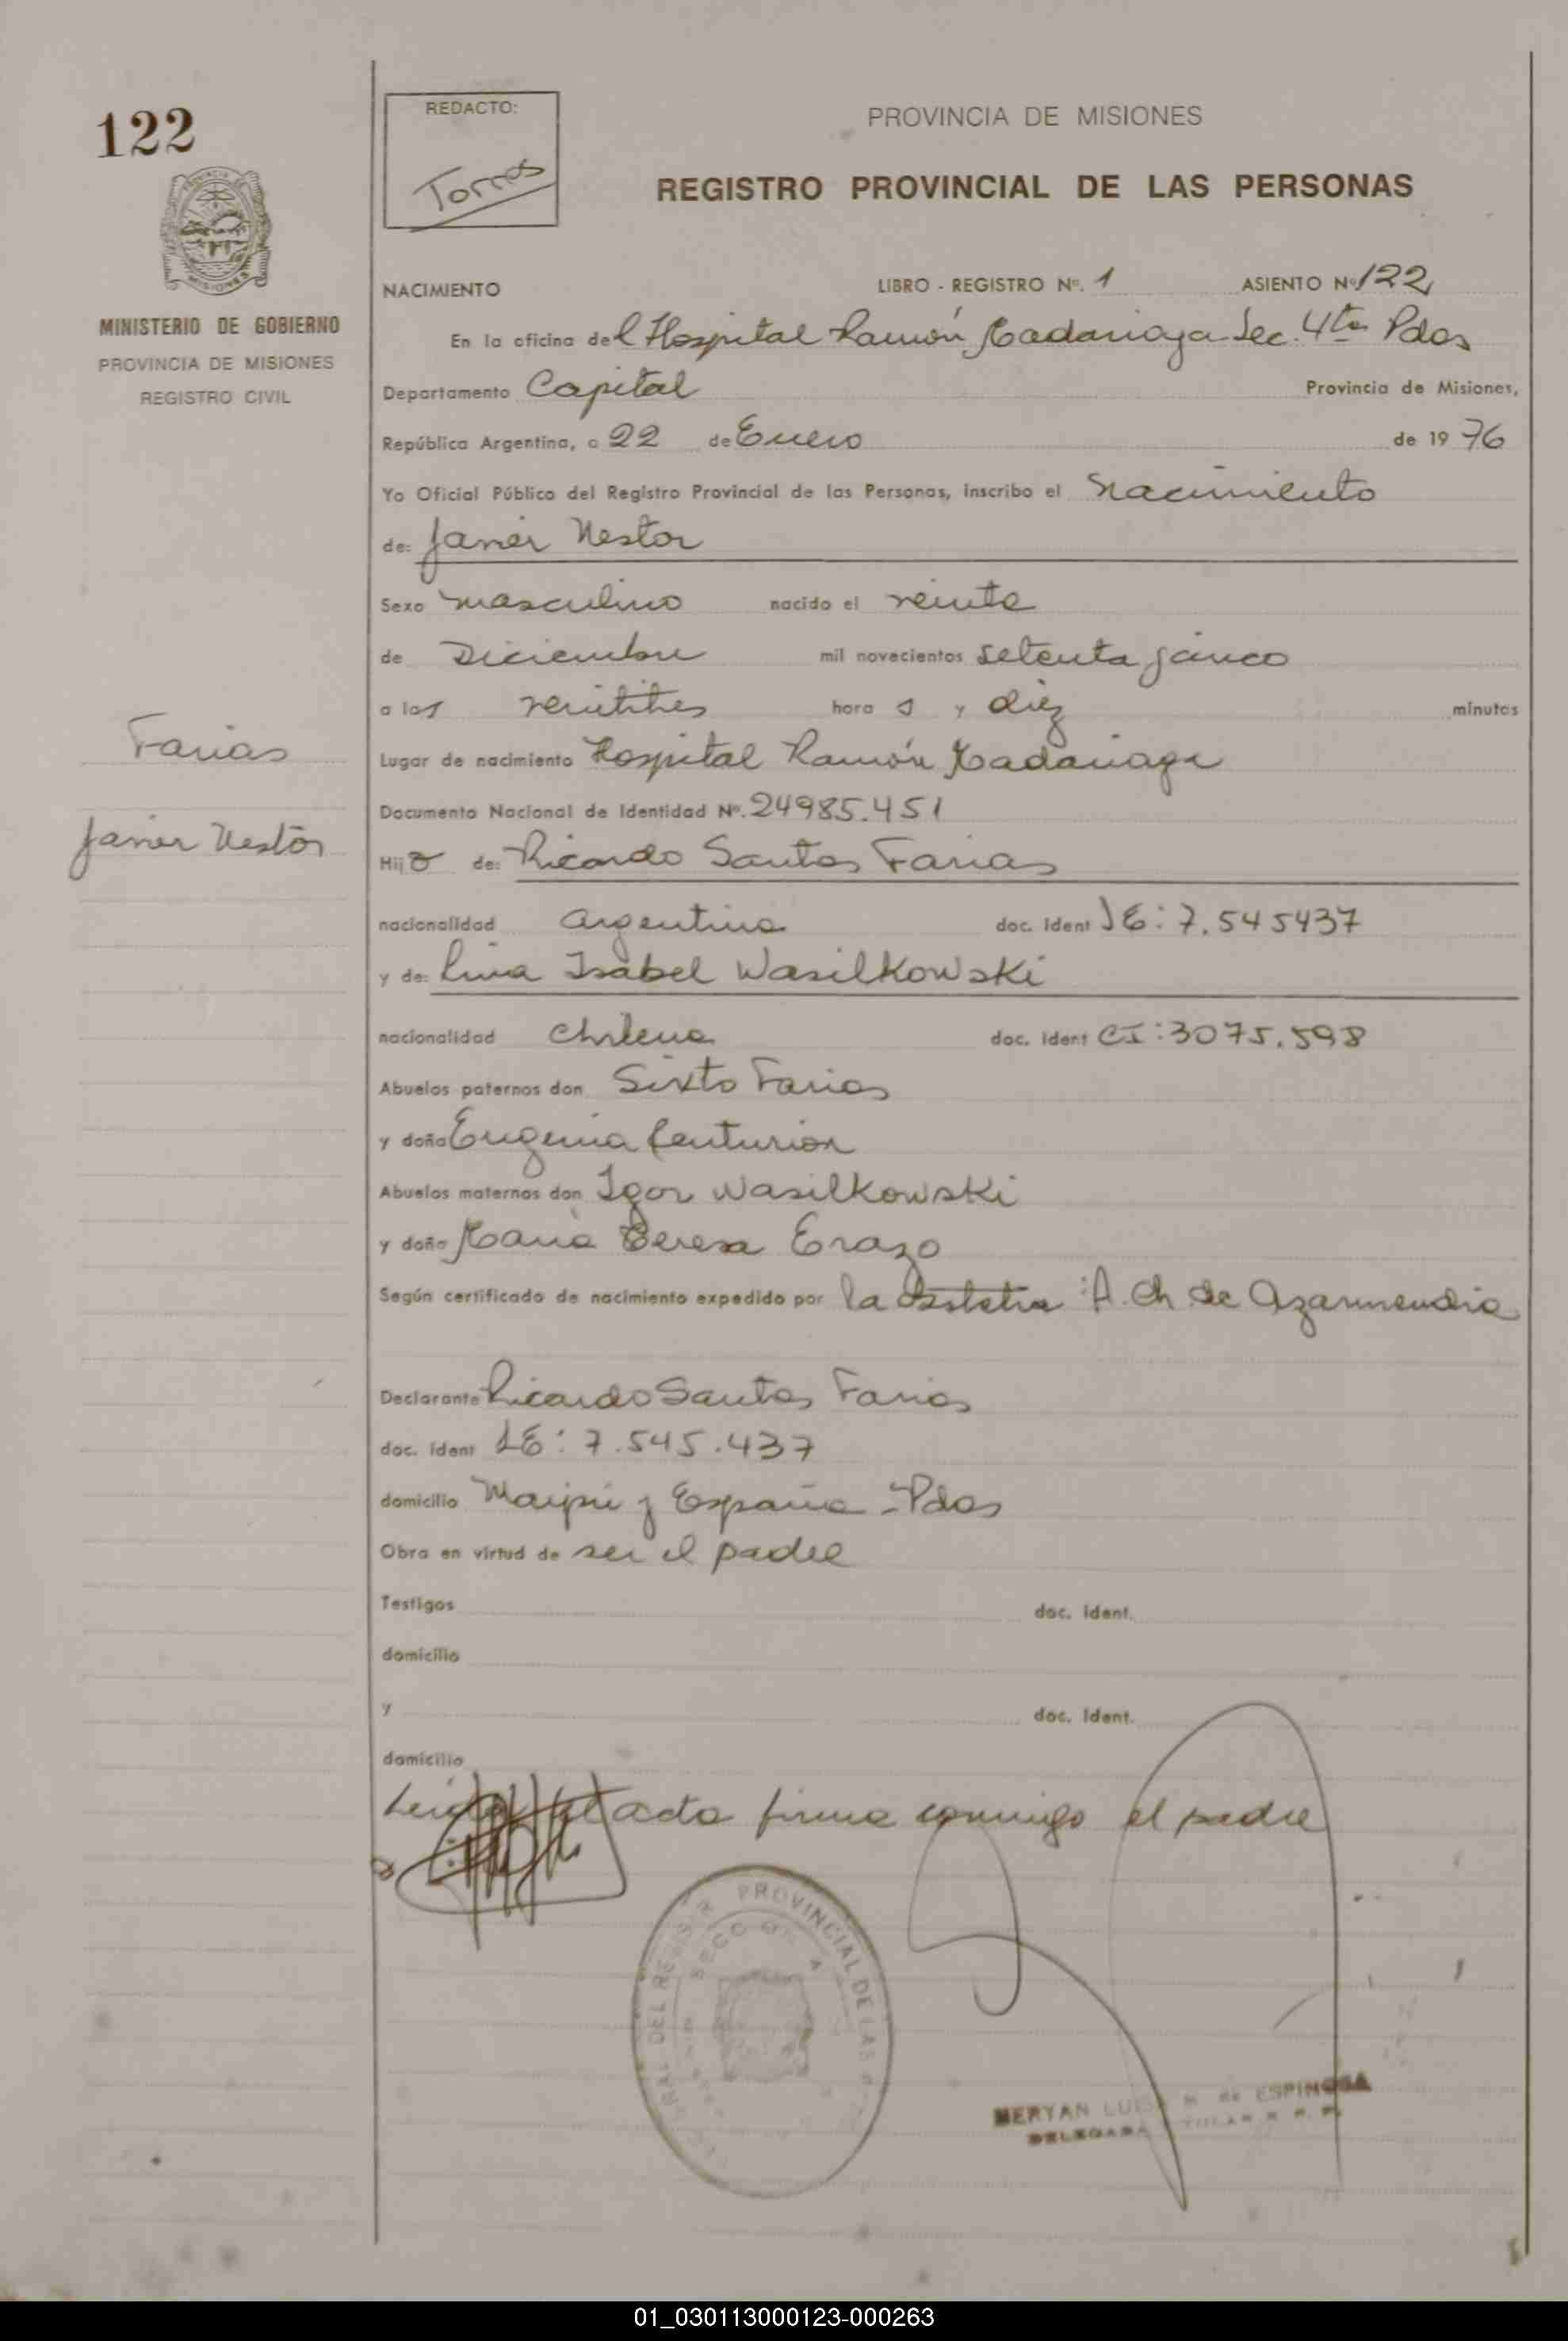 122
REDACTO:
Torres
PROVINCIA DE MISIONES
REGISTRO PROVINCIAL DE LAS PERSONAS
MINISTERIO DE GOBIERNO
PROVINCIA DE MISIONES
REGISTRO CIVIL
NACIMIENTO LIBRO - REGISTRO Nº. 1 ASIENTO Nº 122
En la oficina del Hospital Ramón Madariaga Sec. 4ta Pdas
Departamento Capital Provincia de Misiones,
República Argentina, a 22 de Enero de 1976
Yo Oficial Público del Registro Provincial de las Personas, inscribo el Nacimiento
de: Javier Nestor
Sexo masculino nacido el veinte
de Diciembre mil novecientos setenta y cinco
a las veintitres horas y diez minutos
Farias
Lugar de nacimiento Hospital Ramón Madariaga
Documento Nacional de Identidad Nº. 24985.451
Javier Nestor
Hijo de: Ricardo Santos Farias
nacionalidad argentina doc. Ident LE: 7.545437
y de: Lina Isabel Wasilkowski
nacionalidad chilena doc. Ident CI: 3075.598
Abuelos paternos don Sixto Farias
y doña Eugenia Centurion
Abuelos maternos don Igor Wasilkowski
y doña María Teresa Erazo
Según certificado de nacimiento expedido por la : A. Ch de Azarmendia
Declarante Ricardo Santos Farias
doc. Ident LE: 7.545.437
domicilio Maipú y España - Pdas
Obra en virtud de ser el padre
Testigos doc. Ident.
domicilio
y doc. Ident.
domicilio
Leida el acta firma conmigo el padre
PROVINCIAL DE LAS
MERYAN LUISA M. de ESPINOSA
DELEGADA TITULAR R. P.
01_030113000123-000263